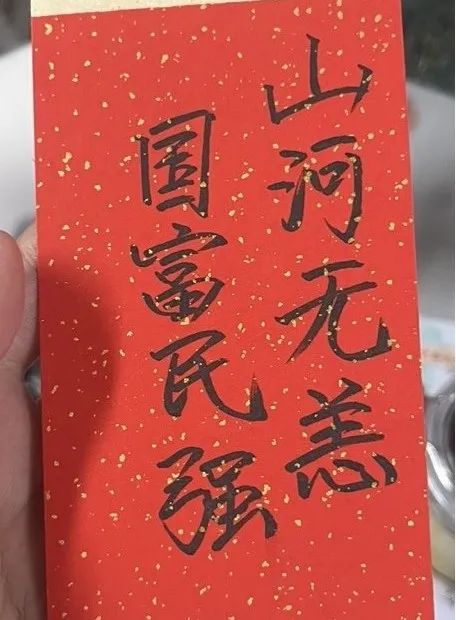 山河无恙
国富民强